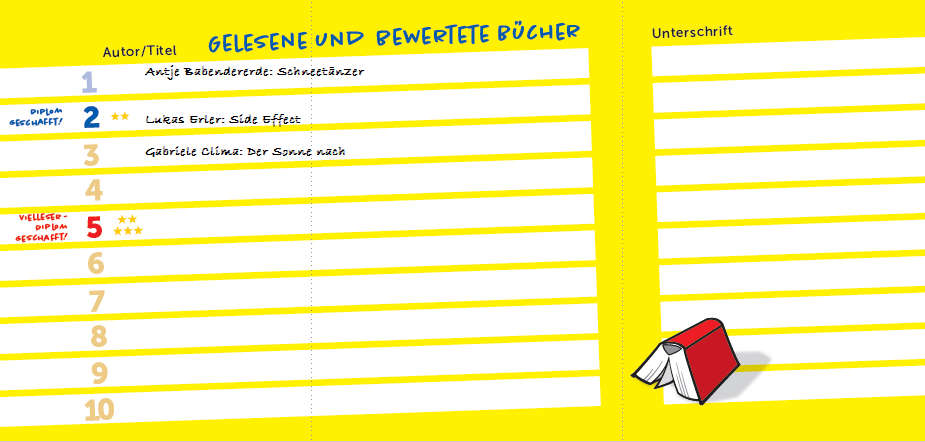 GELESENE UND BEWERTETE BÜCHER
Autor/Titel
Unterschrift
1 Antje Babendererde: Schneetänzer
DIPLOM
GESCHAFFT!
2 Lukas Erler: Side Effect
3 Gabriele Clima: Der Sonne nach
4
VIELLESER-
DIPLOM
GESCHAFFT!
5
6
7
8
9
10